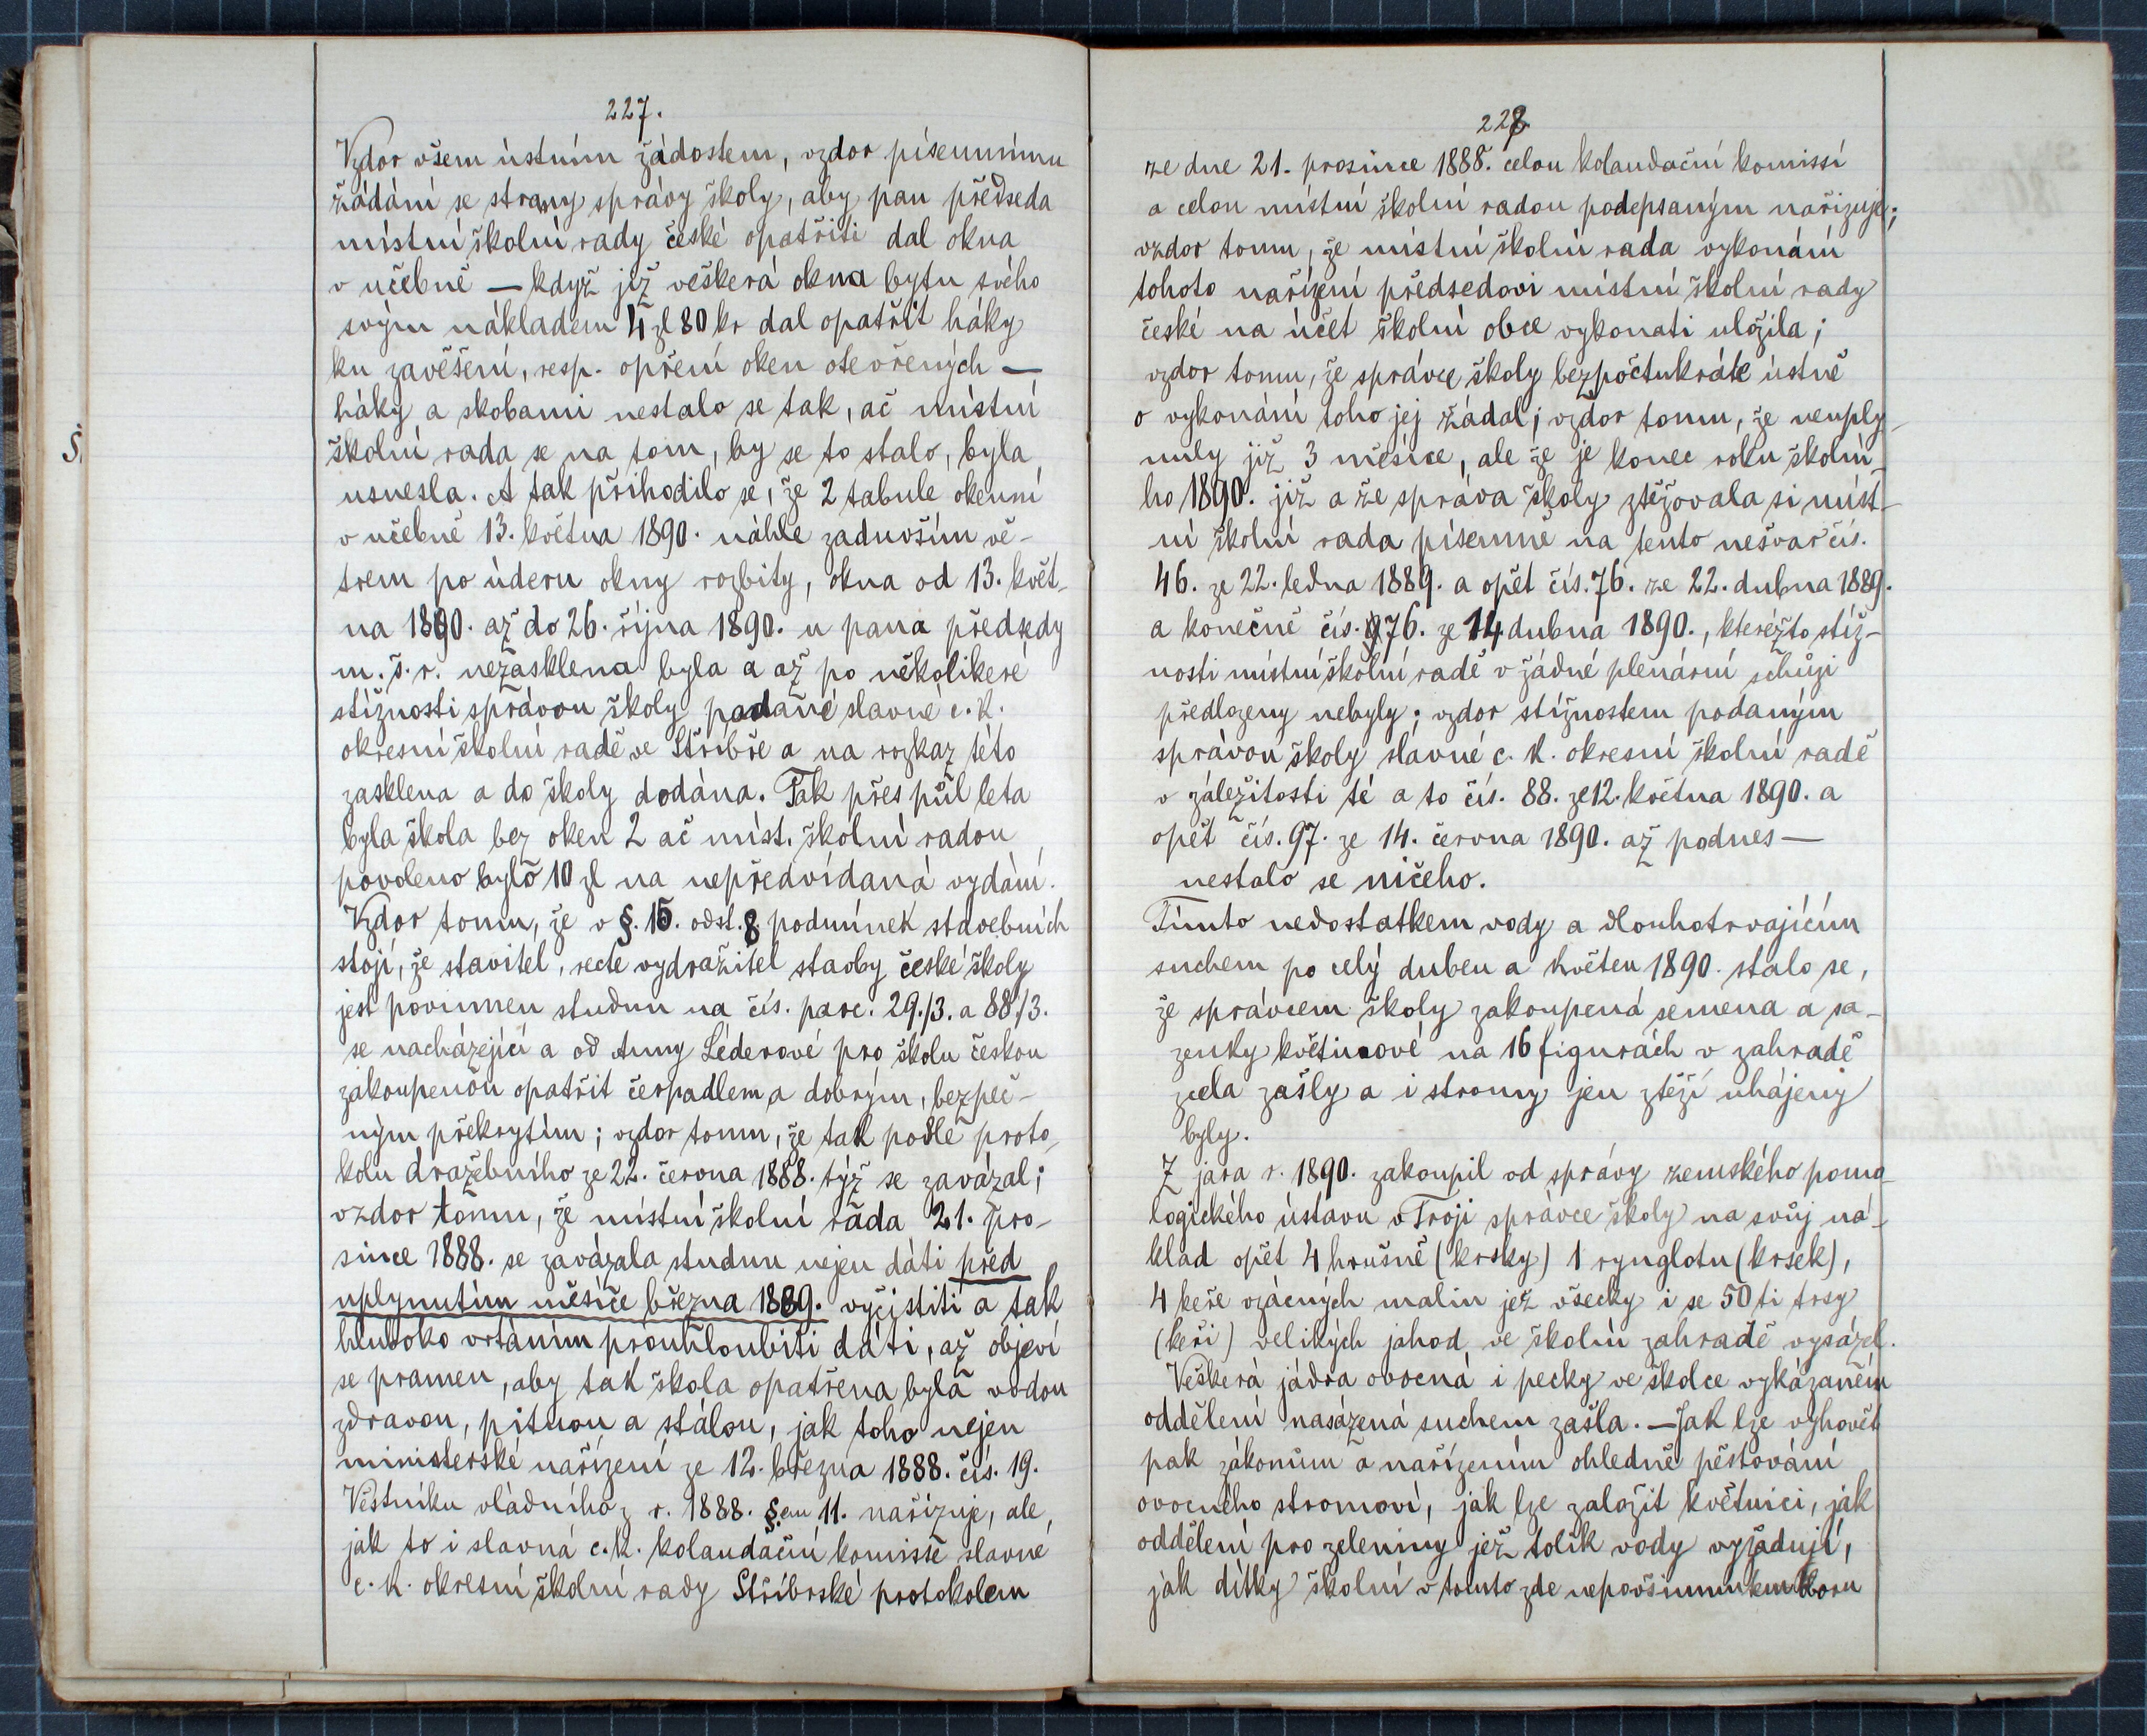 227.
Vzdor všem ústním žádostem, vzdor písemnímu
žádání se strany správy školy, aby pan předseda
místní školní rady české opatřiti dal okna
v učebně — když již veškerá okna bytu svého
svým nákladem 4 zl 80 kr dal opatřit háky
ku zavěšení, resp. opření oken otevřených —
háky a skobami nestalo se tak, ač místní
školní rada se na tom, by se to stalo, byla
usnesla. A tak přihodilo se, že 2 tabule okenní
v učebně 13. května 1890. náhle zaduvším vě-
trem po úderu okny rozbity, okna od 13. květ-
na 1890. až do 26. října 1890. u pana předsedy
m. š. r. nezasklena byla a až po několikeré
stížnosti správou školy podané slavné c. k.
okresní školní radě ve Stříbře a na rozkaz této
zasklena a do školy dodána. Tak přes půl leta
byla škola bez oken 2 ač míst. školní radou
povoleno bylo 10 zl na nepředvídaná vydání.
Vzdor tomu, že v §. 15. odst. 8. podmínek stavebních
stojí, že stavitel, recte vydražitel stavby české školy
jest povinnen studnu na čís. parc. 29./3. a 88./3.
se nacházející a od Anny Léderové pro školu českou
zakoupenou opatřit čerpadlem a dobrým, bezpeč-
ným překrytím; vzdor tomu, že tak podle proto-
kolu dražebního ze 22. června 1888. týž se zavázal;
vzdor tomu, že místní školní rada 21. pro-
since 1888. se zavázala studnu nejen dáti před
uplynutím měsíce března 1889. vyčistiti a tak
hluboko vrtáním prouhloubiti dáti, až objeví
se pramen, aby tak škola opatřena byla vodou
zdravou, pitnou a stálou, jak toho nejen
ministerské nařízení ze 12. března 1888. čís. 19.
Věstníku vládního z r. 1888. §em 11. nařizuje, ale
jak to i slavná c. k. kolaudační komisse slavné
c. k. okresní školní rady Stříbrské protokolem
228.
ze dne 21. prosince 1888. celou kolaudační komissí
a celou místní školní radou podepsaným nařizuje;
vzdor tomu, že místní školní rada vykonání
tohoto nařízení předsedovi místní školní rady
české na účet školní obce vykonati uložila;
vzdor tomu, že správce školy bezpočtukráte ústně
o vykonání toho jej žádal; vzdor tomu, že neuply-
nuly již 3 měsíce, ale že je konec roku školní-
ho 1890. již a že správa školy ztěžovala si míst-
ní školní rada písemně na tento nešvar čís.
46. ze 22. ledna 1889. a opět čís. 76. ze 22. dubna 1889.
a konečně čís. 76. ze 14 dubna 1890., kteréžto stíž-
nosti místní školní radě v žádné plenární schůzi
předlozeny nebyly; vzdor stížnostem podaným
správou školy slavné c. k. okresní školní radě
v záležitosti té a to čís. 88. ze 12. května 1890. a
opět čís. 97. ze 14. června 1890. až podnes —
nestalo se ničeho.
Tímto nedostatkem vody a dlouhotrvajícím
suchem po celý duben a květen 1890. stalo se,
že správcem školy zakoupená semena a sa-
zenky květinové na 16 figurách v zahradě
zcela zašly a i stromy jen ztěží uhájeny
byly.
Z jara r. 1890. zakoupil od správy zemského pomo-
logického ústavu v Troji správce školy na svůj ná-
klad opět 4 hrušně (krsky) 1 rynglotu (krsek),
4 keře vzácných malin jež všecky i se 50ti trsy
(keři) velikých jahod ve školní zahradě vysázel.
Veškerá jádra ovocná i pecky ve školce vykázaném
oddělení nasázená suchem zašla. — Jak lze vyhovět
pak zákonům a nařízením ohledně pěstování
ovocného stromoví, jak lze založit květnici, jak
oddělení pro zeleniny jež tolik vody vyžadují,
jak dítky školní v tomto zde nepovšimnutém